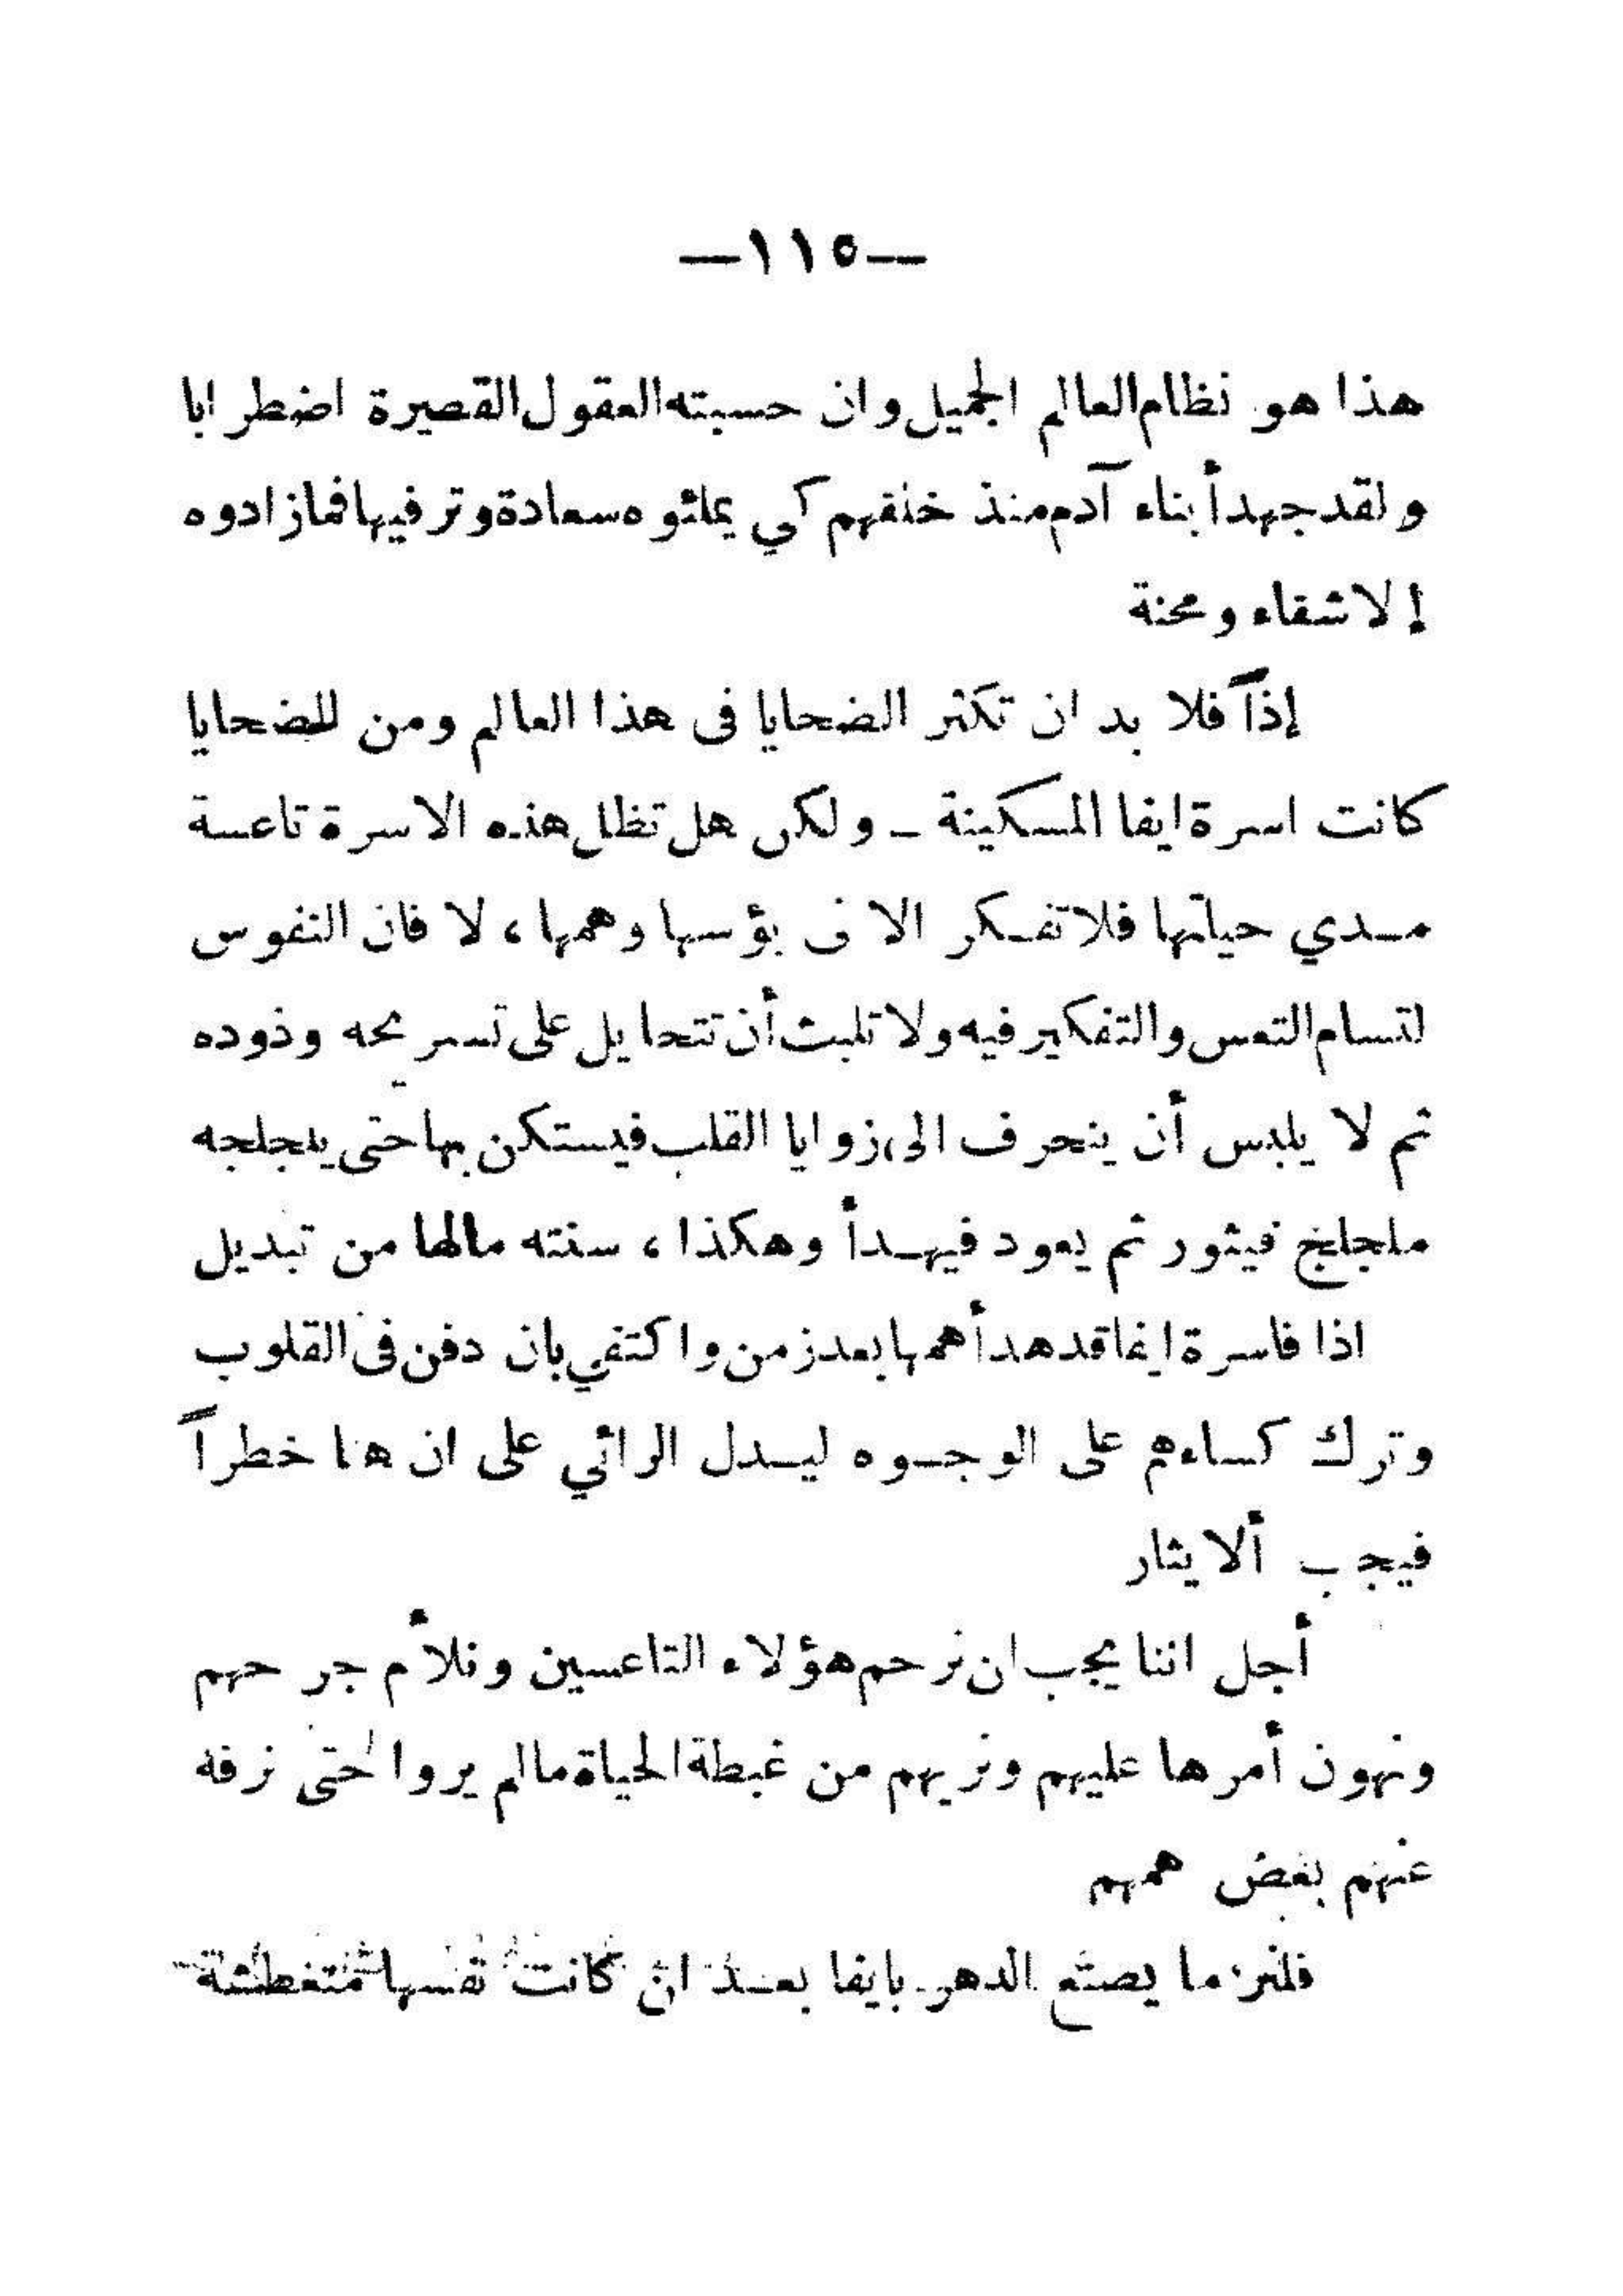 —١١٥—
هذا هو نظام العالم الجميل وان حسبته العقول القصيرة اضطرابا
ولقد جهد أبناء آدم منذ خلقهم كي يملئوه سعادة وترفيها فمازادوه
إلا شقاء ومحنة
إذاً فلا بد ان تكثر الضحايا فى هذا العالم ومن للضحايا
كانت اسرة ايفا المسكينة ـ ولكن هل تظل هذه الاسرة تاعسة
مدي حياتها فلا تفكر الا فى بؤسها وهمها، لا فان النفوس
لتسام التعس والتفكير فيه ولا تلبث أن تتحايل على تسريحه وذوده
ثم لا يلبس أن ينحرف الى زوايا القلب فيستكن بها حتى يلجلجه
ملجلج فيثور ثم يعود فيهدأ وهكذا، سنته مالها من تبديل
اذا فاسرة ايفا قد هدأ همها بعد زمن واكتفي بان دفن فى القلوب
وترك كساءهم على الوجوه ليدل الرائي على ان هنا خطراً
فيجب ألا يثار
أجل اننا يجب ان نرحم هؤلاء التاعسين ونلأم جرحهم
ونهون أمرها عليهم ونريهم من غبطة الحياة مالم يروا حتى نرفه
عنهم بعض همهم
فلنر ما يصنع الدهر بايفا بعد ان كانت نفسها متغطشة